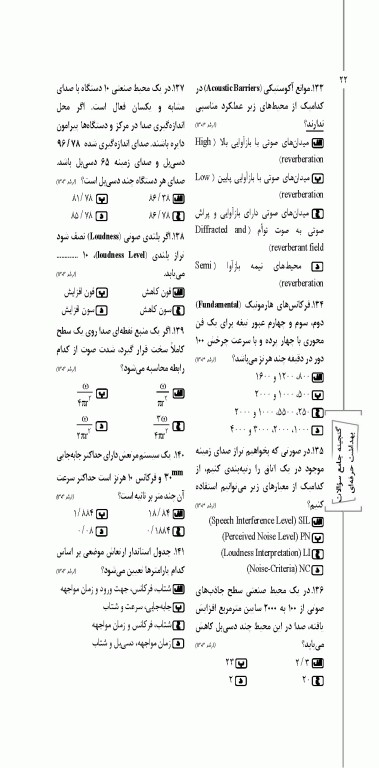 ۲۲
۱۳۳.موانع آکوستیکی (Acoustic Barriers) در
کدامیک از محیط‌های زیر عملکرد مناسبی
ندارند؟
الف میدان‌های صوتی با بازآوایی بالا (High
reverberation)
ب میدان‌های صوتی با بازآوایی پایین (Low
reverberation)
ج میدان‌های صوتی دارای بازآوایی و پراش
صوتی به صورت توأم (Diffracted and
reverberant field)
د محیط‌های نیمه بازآوا (Semi
reverberation)
۱۳۴.فرکانس‌های هارمونیک (Fundamental)
دوم، سوم و چهارم عبور تیغه برای یک فن
محوری با چهار پرده و با سرعت چرخش ۱۰۰
دور در دقیقه چند هرتز می‌باشد؟
الف ۸۰۰، ۱۲۰۰ و ۱۶۰۰
ب ۵۰۰، ۱۰۰۰ و ۲۰۰۰
ج ۲۵۰، ۵۵۰۰، ۱۰۰۰ و ۲۰۰۰
د ۱۰۰۰، ۲۰۰۰، ۳۰۰۰ و ۴۰۰۰
۱۳۵.در صورتی که بخواهیم تراز صدای زمینه
موجود در یک اتاق را رتبه‌بندی کنیم، از
کدامیک از معیارهای زیر می‌توانیم استفاده
کنیم؟
الف SIL (Speech Interference Level)
ب PN (Perceived Noise Level)
ج LI (Loudness Interpretation)
د NC (Noise-Criteria)
۱۳۶.در یک محیط صنعتی سطح جاذب‌های
صوتی از ۱۰۰ به ۲۰۰۰ سابین مترمربع افزایش
یافته، صدا در این محیط چند دسی‌بل کاهش
می‌یابد؟
الف ۳/۲ ب ۲۳
ج ۲۰ د ۲
۱۳۷.در یک محیط صنعتی ۱۰ دستگاه با صدای
مشابه و یکسان فعال است. اگر محل
اندازه‌گیری صدا در مرکز و دستگاه‌ها پیرامون
دایره باشند، صدای اندازه‌گیری شده ۹۶/۷۸
دسی‌بل و صدای زمینه ۶۵ دسی‌بل باشد،
صدای هر دستگاه چند دسی‌بل است؟
الف ۸۶/۳۸ ب ۸۱/۷۸
ج ۸۶/۷۸ د ۸۵/۷۸
۱۳۸.اگر بلندی صوتی (Loudness) نصف شود
تراز بلندی (loudness Level)، ۱۰ ............
می‌یابد.
الف فون کاهش ب فون افزایش
ج سون کاهش د سون افزایش
۱۳۹.اگر یک منبع نقطه‌ای صدا روی یک سطح
کاملاً سخت قرار گیرد، شدت صوت از کدام
رابطه محاسبه می‌شود؟
الف ω/πr² ب ω/۴πr²
ج ۳ω/۴πr² د ω/۲πr²
۱۴۰. یک سیستم مرتعش دارای حداکثر جابه‌جایی
۳۰mm و فرکانس ۱۰ هرتز است حداکثر سرعت
آن چند متر بر ثانیه است؟
الف ۱۸/۸۴ ب ۱/۸۸۴
ج ۰/۱۸۸۴ د ۰/۰۸
۱۴۱. جدول استاندارد ارتعاش موضعی بر اساس
کدام پارامترها تعیین می‌شود؟
الف شتاب، فرکانس، جهت ورود و زمان مواجهه
ب جابه‌جایی، سرعت و شتاب
ج شتاب، فرکانس و زمان مواجهه
د زمان مواجهه، دسی‌بل و شتاب
گنجینه جامع سؤالات
بهداشت حرفه‌ای